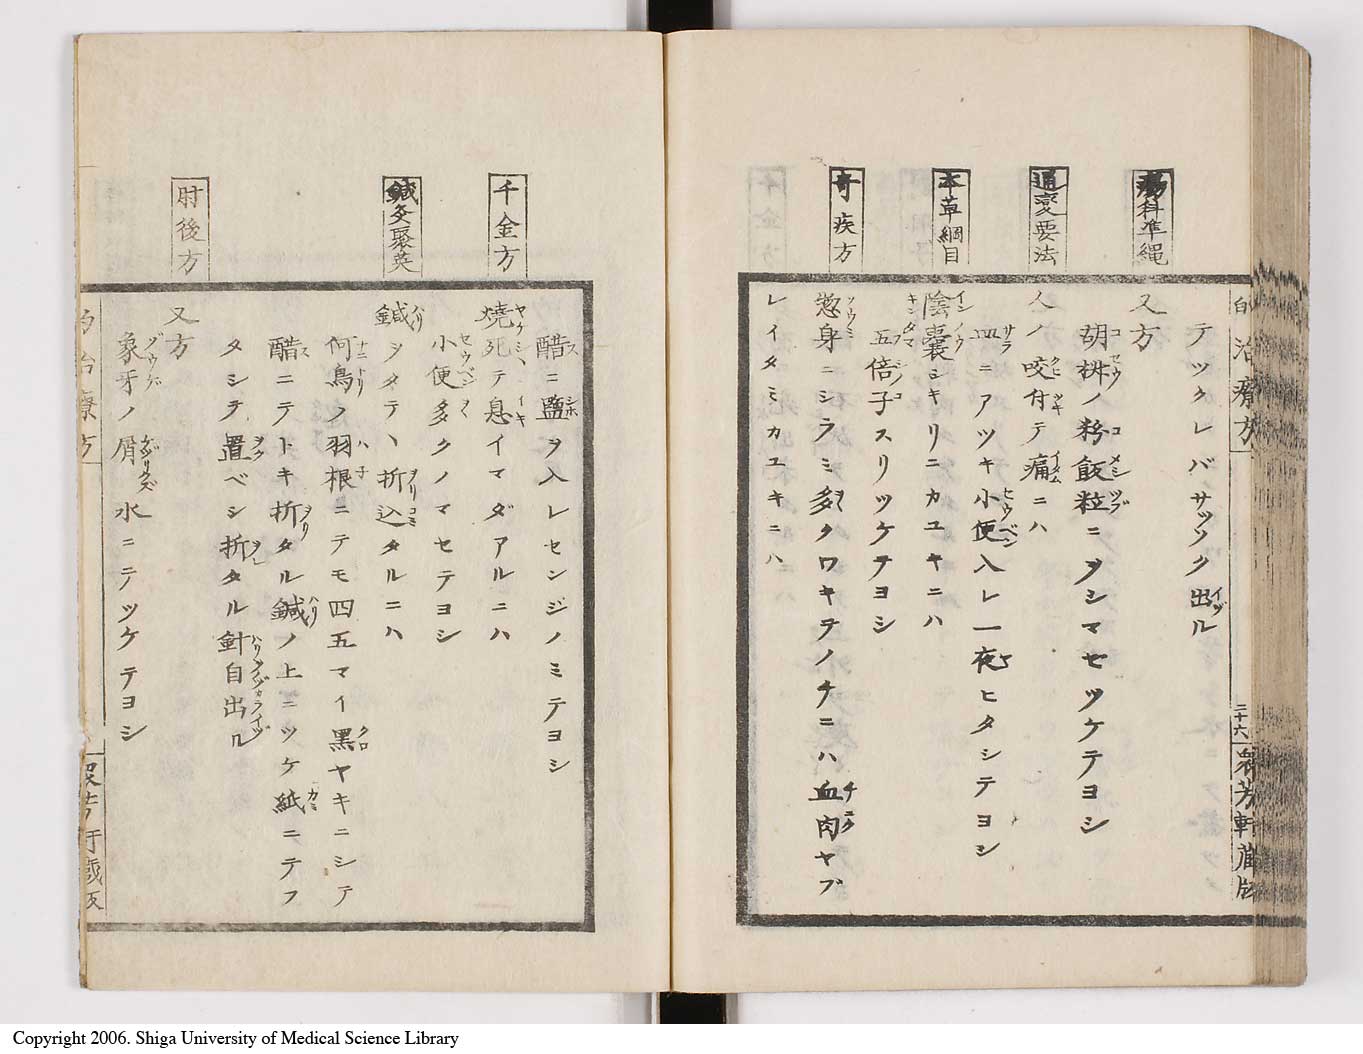 瘍科準縄
通変要法
本草綱目
奇疾方
テツクレバサツソク出ル
又方
胡桝ノ粉飯粒ニヲシマゼツケテヨシ
人ノ咬付テ痛ニハ
皿ニアツキ小便入レ一夜ヒタシテヨシ
陰嚢シキリニカユキニハ
五倍子スリツケテヨシ
惣身ニシラミ多クワキテノチニハ血肉ヤブ
レイタミカユキニハ
的治療方
二十六
衆芳軒蔵版
千金方
鍼灸聚英
肘後方
醋ニ鹽ヲ入レセンジノミテヨシ
焼死テ息イマダアルニハ
小便多クノマセテヨシ
鍼ヲタテヽ折込タルニハ
何鳥ノ羽根ニテモ四五マイ黒ヤキニシテ
醋ニテトキ折タル鍼ノ上ニツケ紙ニテフ
タシテ置ベシ折タル針自出ル
又方
象牙ノ屑水ニテツケテヨシ
Copyright 2006. Shiga University of Medical Science Library